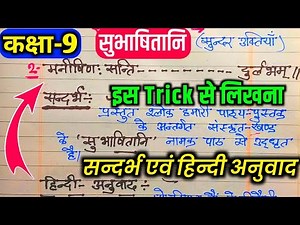 कक्षा-9 सुभाषितानि (सुन्दर उक्तियाँ)
2- मनीषिणः सन्ति - - - - - - - दुर्लभम् ॥
सन्दर्भ:- इस Trick से लिखना
प्रस्तुत श्लोक हमारी पाठ्य-पुस्तक
के अन्तर्गत संस्कृत-खण्ड
के 'सुभाषितानि' नामक पाठ से उद्धृत
है।
सन्दर्भ एवं हिन्दी अनुवाद
हिन्दी - अनुवाद:-